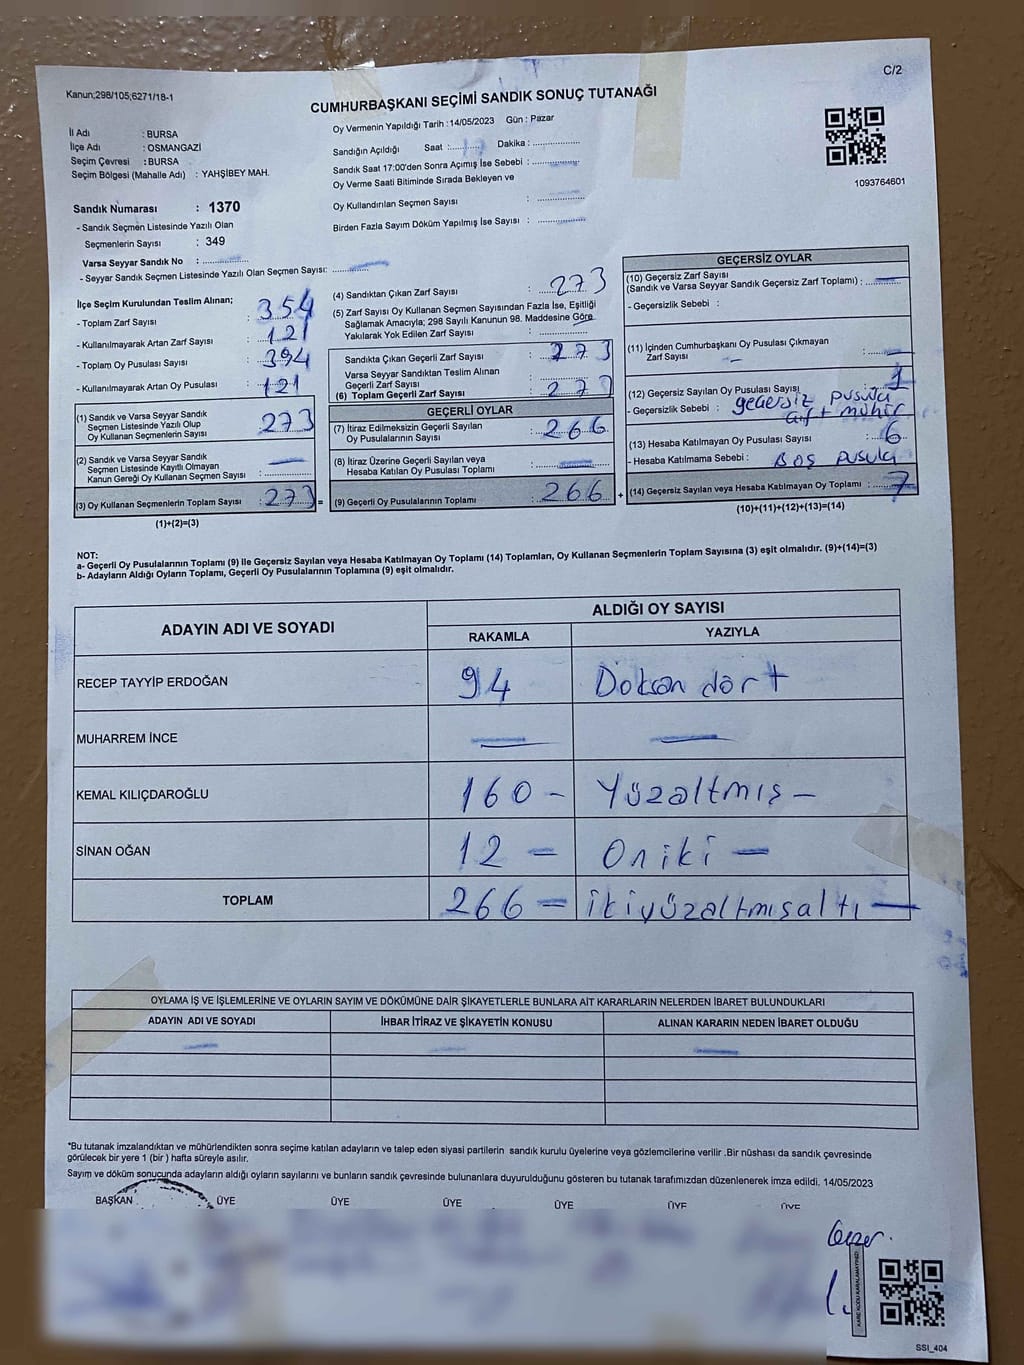 C/2
Kanun;298/105;6271/18-1
CUMHURBAŞKANI SEÇİMİ SANDIK SONUÇ TUTANAĞI
İl Adı : BURSA
İlçe Adı : OSMANGAZİ
Seçim Çevresi : BURSA
Seçim Bölgesi (Mahalle Adı) : YAHŞİBEY MAH.
Sandık Numarası : 1370
- Sandık Seçmen Listesinde Yazılı Olan
Seçmenlerin Sayısı : 349
Varsa Seyyar Sandık No :
- Seyyar Sandık Seçmen Listesinde Yazılı Olan Seçmen Sayısı:
Oy Vermenin Yapıldığı Tarih : 14/05/2023 Gün : Pazar
Sandığın Açıldığı Saat : 17 Dakika :
Sandık Saat 17:00'den Sonra Açımış İse Sebebi :
Oy Verme Saati Bitiminde Sırada Bekleyen ve
Oy Kullandırılan Seçmen Sayısı :
Birden Fazla Sayım Döküm Yapılmış İse Sayısı :
1093764601
İlçe Seçim Kurulundan Teslim Alınan;
- Toplam Zarf Sayısı : 354
- Kullanılmayarak Artan Zarf Sayısı : 121
- Toplam Oy Pusulası Sayısı : 394
- Kullanılmayarak Artan Oy Pusulası : 121
(1) Sandık ve Varsa Seyyar Sandık
Seçmen Listesinde Yazılı Olup
Oy Kullanan Seçmenlerin Sayısı : 273
(2) Sandık ve Varsa Seyyar Sandık
Seçmen Listesinde Kayıtlı Olmayan
Kanun Gereği Oy Kullanan Seçmen Sayısı :
(3) Oy Kullanan Seçmenlerin Toplam Sayısı : 273 =
(1)+(2)=(3)
(4) Sandıktan Çıkan Zarf Sayısı : 273
(5) Zarf Sayısı Oy Kullanan Seçmen Sayısından Fazla İse, Eşitliği
Sağlamak Amacıyla; 298 Sayılı Kanunun 98. Maddesine Göre
Yakılarak Yok Edilen Zarf Sayısı :
Sandıkta Çıkan Geçerli Zarf Sayısı : 273
Varsa Seyyar Sandıktan Teslim Alınan
Geçerli Zarf Sayısı :
(6) Toplam Geçerli Zarf Sayısı : 273
GEÇERLİ OYLAR
(7) İtiraz Edilmeksizin Geçerli Sayılan
Oy Pusulalarının Sayısı : 266
(8) İtiraz Üzerine Geçerli Sayılan veya
Hesaba Katılan Oy Pusulası Toplamı :
(9) Geçerli Oy Pusulalarının Toplamı : 266 +
GEÇERSİZ OYLAR
(10) Geçersiz Zarf Sayısı
(Sandık ve Varsa Seyyar Sandık Geçersiz Zarf Toplamı) :
- Geçersizlik Sebebi :
(11) İçinden Cumhurbaşkanı Oy Pusulası Çıkmayan
Zarf Sayısı :
(12) Geçersiz Sayılan Oy Pusulası Sayısı : 1
- Geçersizlik Sebebi : geçersiz pusula
mühür
(13) Hesaba Katılmayan Oy Pusulası Sayısı : 6
- Hesaba Katılmama Sebebi : Boş pusula
(14) Geçersiz Sayılan veya Hesaba Katılmayan Oy Toplamı : 7
(10)+(11)+(12)+(13)=(14)
NOT:
a- Geçerli Oy Pusulalarının Toplamı (9) ile Geçersiz Sayılan veya Hesaba Katılmayan Oy Toplamı (14) Toplamları, Oy Kullanan Seçmenlerin Toplam Sayısına (3) eşit olmalıdır. (9)+(14)=(3)
b- Adayların Aldığı Oyların Toplamı, Geçerli Oy Pusulalarının Toplamına (9) eşit olmalıdır.
ADAYIN ADI VE SOYADI ALDIĞI OY SAYISI
RAKAMLA YAZIYLA
RECEP TAYYİP ERDOĞAN 94 Doksan dört
MUHARREM İNCE
KEMAL KILIÇDAROĞLU 160 - Yüzaltmış -
SİNAN OĞAN 12 = Oniki -
TOPLAM 266 = ikiyüzaltmışaltı -
OYLAMA İŞ VE İŞLEMLERİNE VE OYLARIN SAYIM VE DÖKÜMÜNE DAİR ŞİKAYETLERLE BUNLARA AİT KARARLARIN NELERDEN İBARET BULUNDUKLARI
ADAYIN ADI VE SOYADI İHBAR İTİRAZ VE ŞİKAYETİN KONUSU ALINAN KARARIN NEDEN İBARET OLDUĞU
*Bu tutanak imzalandıktan ve mühürlendikten sonra seçime katılan adayların ve talep eden siyasi partilerin sandık kurulu üyelerine veya gözlemcilerine verilir .Bir nüshası da sandık çevresinde
görülecek bir yere 1 (bir ) hafta süreyle asılır.
Sayım ve döküm sonucunda adayların aldığı oyların sayılarını ve bunların sandık çevresinde bulunanlara duyurulduğunu gösteren bu tutanak tarafımızdan düzenlenerek imza edildi. 14/05/2023
BAŞKAN ÜYE ÜYE ÜYE ÜYE ÜYE ÜYE
KARE KODU KARALAMAYINIZ!
SSI_404